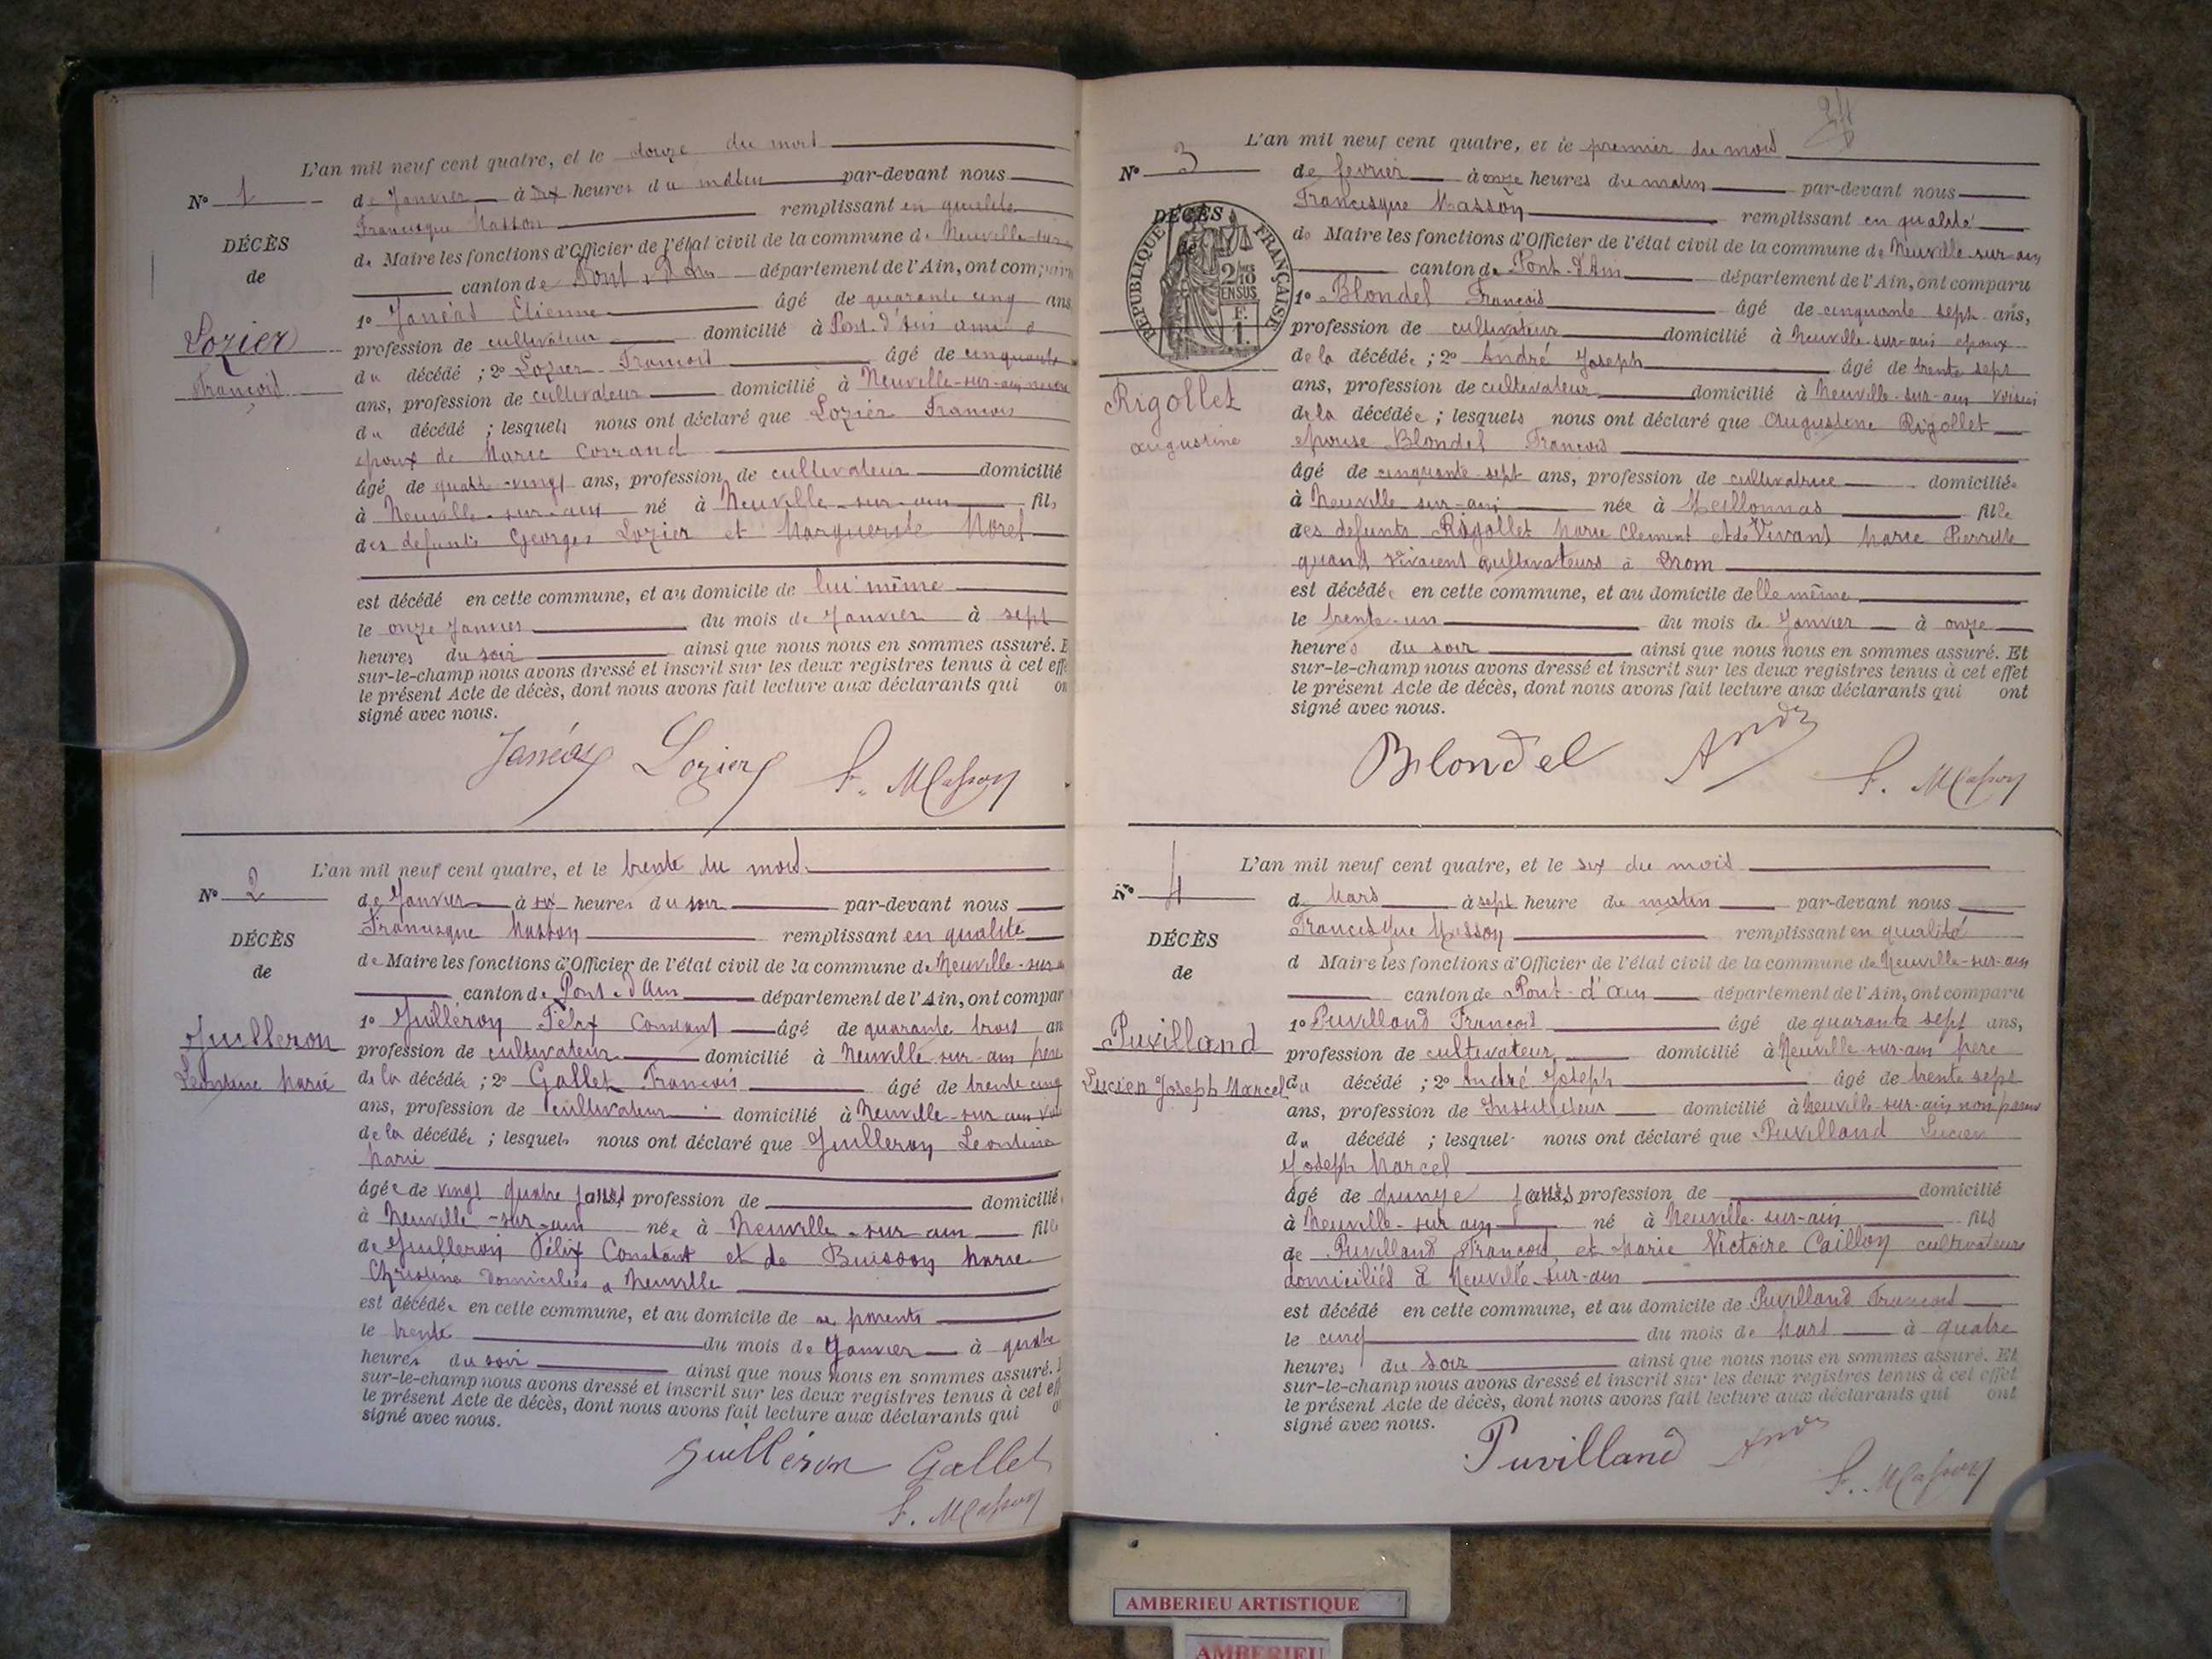 L'an mil neuf cent quatre, et le douze du mois
N° 1
de Janvier à dix heures du matin par-devant nous
Francisque Masson remplissant en qualité
DÉCÈS
de Maire les fonctions d'Officier de l'état civil de la commune de Neuville-sur
de
canton de Pont d'Ain département de l'Ain, ont comparu
1° Janéaz Etienne âgé de quarante cinq ans
Lozier
profession de cultivateur domicilié à Pont-d'Ain ami
François
du décédé ; 2° Lozier François âgé de cinquante
ans, profession de cultivateur domicilié à Neuville-sur-ain neveu
du décédé ; lesquels nous ont déclaré que Lozier François
époux de Marie Corrand
âgé de quatre-vingt ans, profession de cultivateur domicilié
à Neuville-sur-ain né à Neuville-sur-ain fils
des defunts Georges Lozier et Marguerite Morel
est décédé en cette commune, et au domicile de lui même
le onze Janvier du mois de Janvier à sept
heures du soir ainsi que nous nous en sommes assuré. E
sur-le-champ nous avons dressé et inscrit sur les deux registres tenus à cet effe
le présent Acte de décès, dont nous avons fait lecture aux déclarants qui on
signé avec nous.
Lozier F. Masson
L'an mil neuf cent quatre, et le trente du mois
N° 2
de Janvier à six heures du soir par-devant nous
Francisque Masson remplissant en qualité
DÉCÈS
de Maire les fonctions d'Officier de l'état civil de la commune de Neuville-sur-a
de
canton de Pont-d'Ain département de l'Ain, ont compar
1° Guilleron Félix Constant âgé de quarante trois an
Guilleron
profession de cultivateur domicilié à Neuville sur-ain pere
Leontine Marie
de la décédée ; 2° Gallet François âgé de trente cinq
ans, profession de cultivateur domicilié à Neuville-sur ain
de la décédée ; lesquels nous ont déclaré que Guilleron Leontine
Marie
âgée de vingt quatre jours, profession de domicilié
à Neuville-sur-ain née à Neuville-sur-ain fille
de Guilleron Félix Constant et de Buisson Marie
Christine domiciliés a Neuville
est décédée en cette commune, et au domicile de se parents
le trente du mois de Janvier à quatre
heures du soir ainsi que nous nous en sommes assuré.
sur-le-champ nous avons dressé et inscrit sur les deux registres tenus à cet eff
le présent Acte de décès, dont nous avons fait lecture aux déclarants qui o
signé avec nous.
Guilléron Gallet
F. Masson
24
L'an mil neuf cent quatre, et le premier du mois
N° 3
de fevrier à onze heures du matin par-devant nous
Francisque Masson remplissant en qualité
DÉCÈS
de
RÉPUBLIQUE FRANÇAISE
2/10 EN SUS
F. 1.
de Maire les fonctions d'Officier de l'état civil de la commune de Neuville-sur-ain
canton de Pont-d'Ain département de l'Ain, ont comparu
1° Blondel François âgé de cinquante sept ans,
profession de cultivateur domicilié à Neuville-sur-ain epoux
de la décédée ; 2° André Joseph âgé de trente sept
Rigollet
ans, profession de cultivateur domicilié à Neuville-sur-ain voisin
augustine
de la décédée ; lesquels nous ont déclaré que Augustine Rigollet
epouse Blondel François
âgé de cinquante-sept ans, profession de cultivatrice domiciliée
à Neuville sur-ain née à Meillonnas fille
des defunts Rigollet Marie Clement et de Vivant Marie Pierrette
quand vivaient cultivateurs à Drom
est décédée en cette commune, et au domicile de lle même
le trente-un du mois de Janvier à onze
heures du soir ainsi que nous nous en sommes assuré. Et
sur-le-champ nous avons dressé et inscrit sur les deux registres tenus à cet effet
le présent Acte de décès, dont nous avons fait lecture aux déclarants qui ont
signé avec nous.
Blondel André F. Masson
L'an mil neuf cent quatre, et le six du mois
N° 4
de Mars à sept heure du matin par-devant nous
Francisque Masson remplissant en qualité
DÉCÈS
d Maire les fonctions d'Officier de l'état civil de la commune de Neuville-sur-ain
de
canton de Pont-d'ain département de l'Ain, ont comparu
1° Puvilland François âgé de quarante sept ans,
Puvilland
profession de cultivateur domicilié à Neuville-sur-ain père
Lucien Joseph Marcel
du décédé ; 2° André Joseph âgé de trente sept
ans, profession de Instituteur domicilié à Neuville-sur-ain non parent
du décédé ; lesquel nous ont déclaré que Puvilland Lucien
Joseph Marcel
âgé de quinze jours, profession de domicilié
à Neuville-sur ain né à Neuville-sur-ain fils
de Puvilland François et Marie Victoire Caillon cultivateurs
domiciliés à Neuville-sur-ain
est décédé en cette commune, et au domicile de Puvilland François
le cinq du mois de Mars à quatre
heures du soir ainsi que nous nous en sommes assuré. Et
sur-le-champ nous avons dressé et inscrit sur les deux registres tenus à cet effet
le présent Acte de décès, dont nous avons fait lecture aux déclarants qui ont
signé avec nous.
Puvilland André
F. Masson
AMBERIEU ARTISTIQUE
AMBERIEU